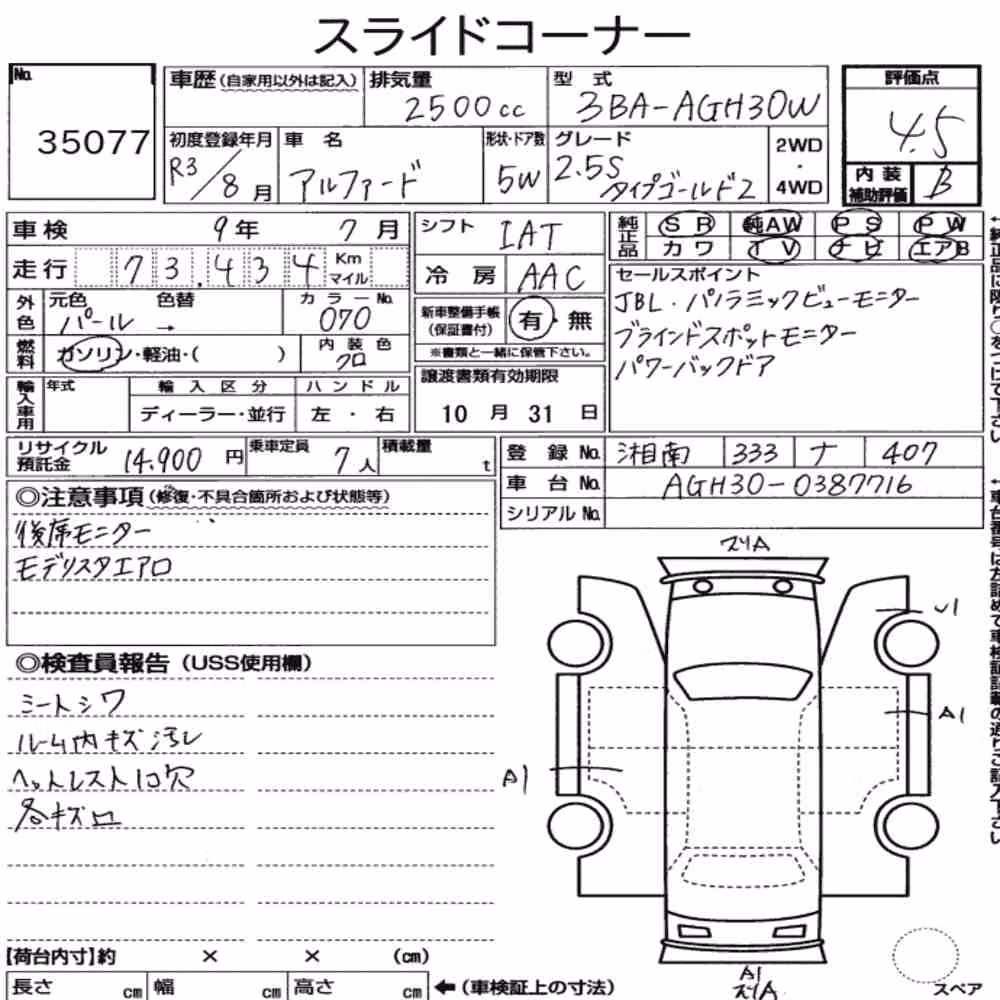 スライドコーナー
No. 35077
車歴(自家用以外は記入) 排気量 2500cc 型式 3BA-AGH30W 評価点 4.5
初度登録年月 R3/8月 車名 アルファード 形状・ドア数 5W グレード 2.5S タイプゴールド2 2WD・4WD 内装補助評価 B
車検 9年 7月 シフト IAT 純正品 SR 純AW PS PW
カワ TV ナビ エアB
走行 73,434 Km マイル 冷房 AAC
セールスポイント
JBL・パノラミックビューモニター
ブラインドスポットモニター
パワーバックドア
外色 元色 パール 色替 → カラーNo. 070 新車整備手帳(保証書付) 有・無
※書類と一緒に保管下さい。
燃料 ガソリン・軽油・( ) 内装色 クロ
譲渡書類有効期限
10月31日
輸入車用 年式 輸入区分 ハンドル
ディーラー・並行 左・右
リサイクル預託金 14.900円 乗車定員 7人 積載量 t
登録No. 湘南 333 ナ 407
車台No. AGH30-0387716
シリアルNo.
◎注意事項(修復・不具合箇所および状態等)
後席モニター
モデリスタエアロ
◎検査員報告(USS使用欄)
シートシワ
ルーム内キズ汚レ
ヘットレスト1コ穴
各キズ凹
ズリA
U1
A1
A1
A1
ズリA
スペア
【荷台内寸】約 × × (cm)
長さ cm 幅 cm 高さ cm ←(車検証上の寸法)